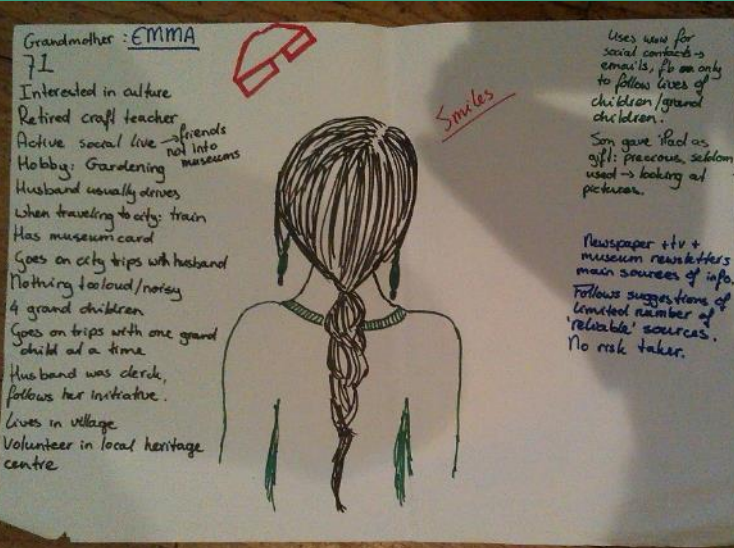 Grandmother : EMMA
71
Interested in culture
Retired craft teacher
Active social live → friends
not into
museums
Hobby: Gardening
Husband usually drives
when traveling to city: train
Has museumcard
Goes on city trips with husband
Nothing too loud/noisy
4 grand children
Goes on trips with one grand
child at a time
Husband was clerck,
follows her initiative.
Lives in village
Volunteer in local heritage
centre
Smiles
Uses www for
social contacts →
emails, fb only
to follow lives of
children/grand
children.
Son gave iPad as
gift: precious, seldom
used → looking at
pictures.
Newspaper + tv +
museum newsletters
main sources of info.
Follows suggestions of
limited number of
'reliable' sources.
No risk taker.